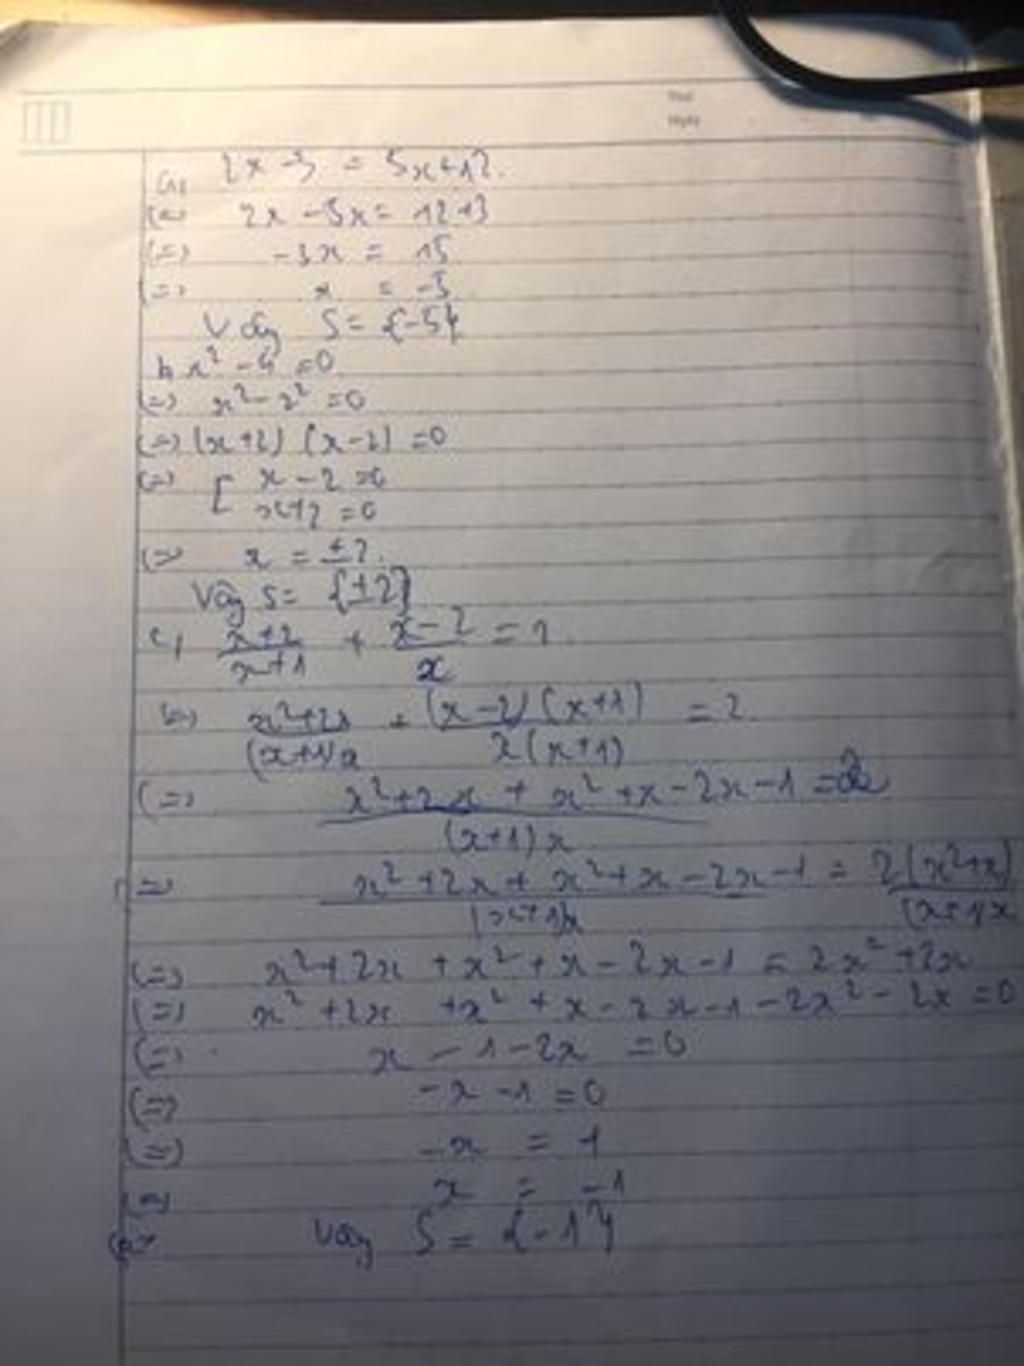 a, 2x - 3 = 5x + 12.
(=) 2x - 5x = 12 + 3
(=) -3x = 15
(=) x = -5
Vậy S = {-5}
b, x² - 4 = 0
(=) x² - 2² = 0
(=) (x+2) (x-2) = 0
(=) [ x - 2 = 0
x + 2 = 0
(=) x = ±2.
Vậy S = {±2}
c, (x+2)/(x+1) + (x-2)/x = 2
(=) (x²+2x)/((x+1)x) + ((x-2)(x+1))/(x(x+1)) = 2.
(=) (x²+2x + x²+x-2x-1)/((x+1)x) = 2
(=) (x²+2x + x²+x-2x-1)/((x+1)x) = 2(x²+x)/((x+1)x)
(=) x²+2x + x² + x - 2x - 1 = 2x² + 2x
(=) x² + 2x + x² + x - 2x - 1 - 2x² - 2x = 0
(=) x - 1 - 2x = 0
(=) -x - 1 = 0
(=) -x = 1
(=) x = -1
Vậy S = {-1}